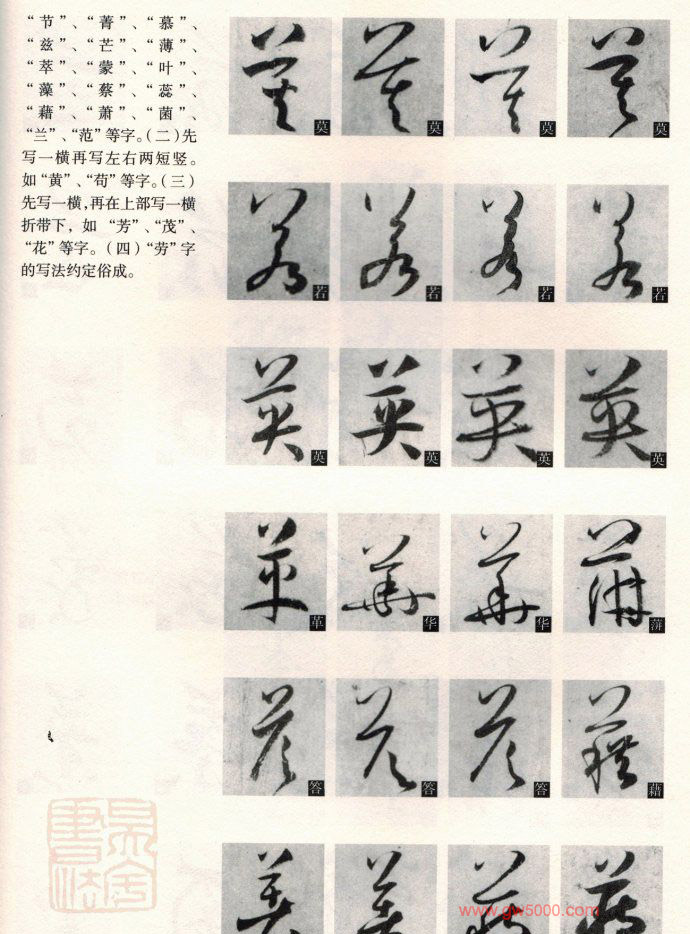 “节”、“菁”、“慕”、
“兹”、“芒”、“薄”、
“萃”、“蒙”、“叶”、
“藻”、“蔡”、“蕊”、
“藉”、“萧”、“菌”、
“兰”、“范”等字。（二）先
写一横再写左右两短竖。
如“黄”、“苟”等字。（三）
先写一横，再在上部写一横
折带下，如 “芳”、“茂”、
“花”等字。（四）“劳”字
的写法约定俗成。
莫 莫 莫 莫
若 若 若 若
英 英 英 英
革 华 华
答 答 答 藉
www.gw5000.com